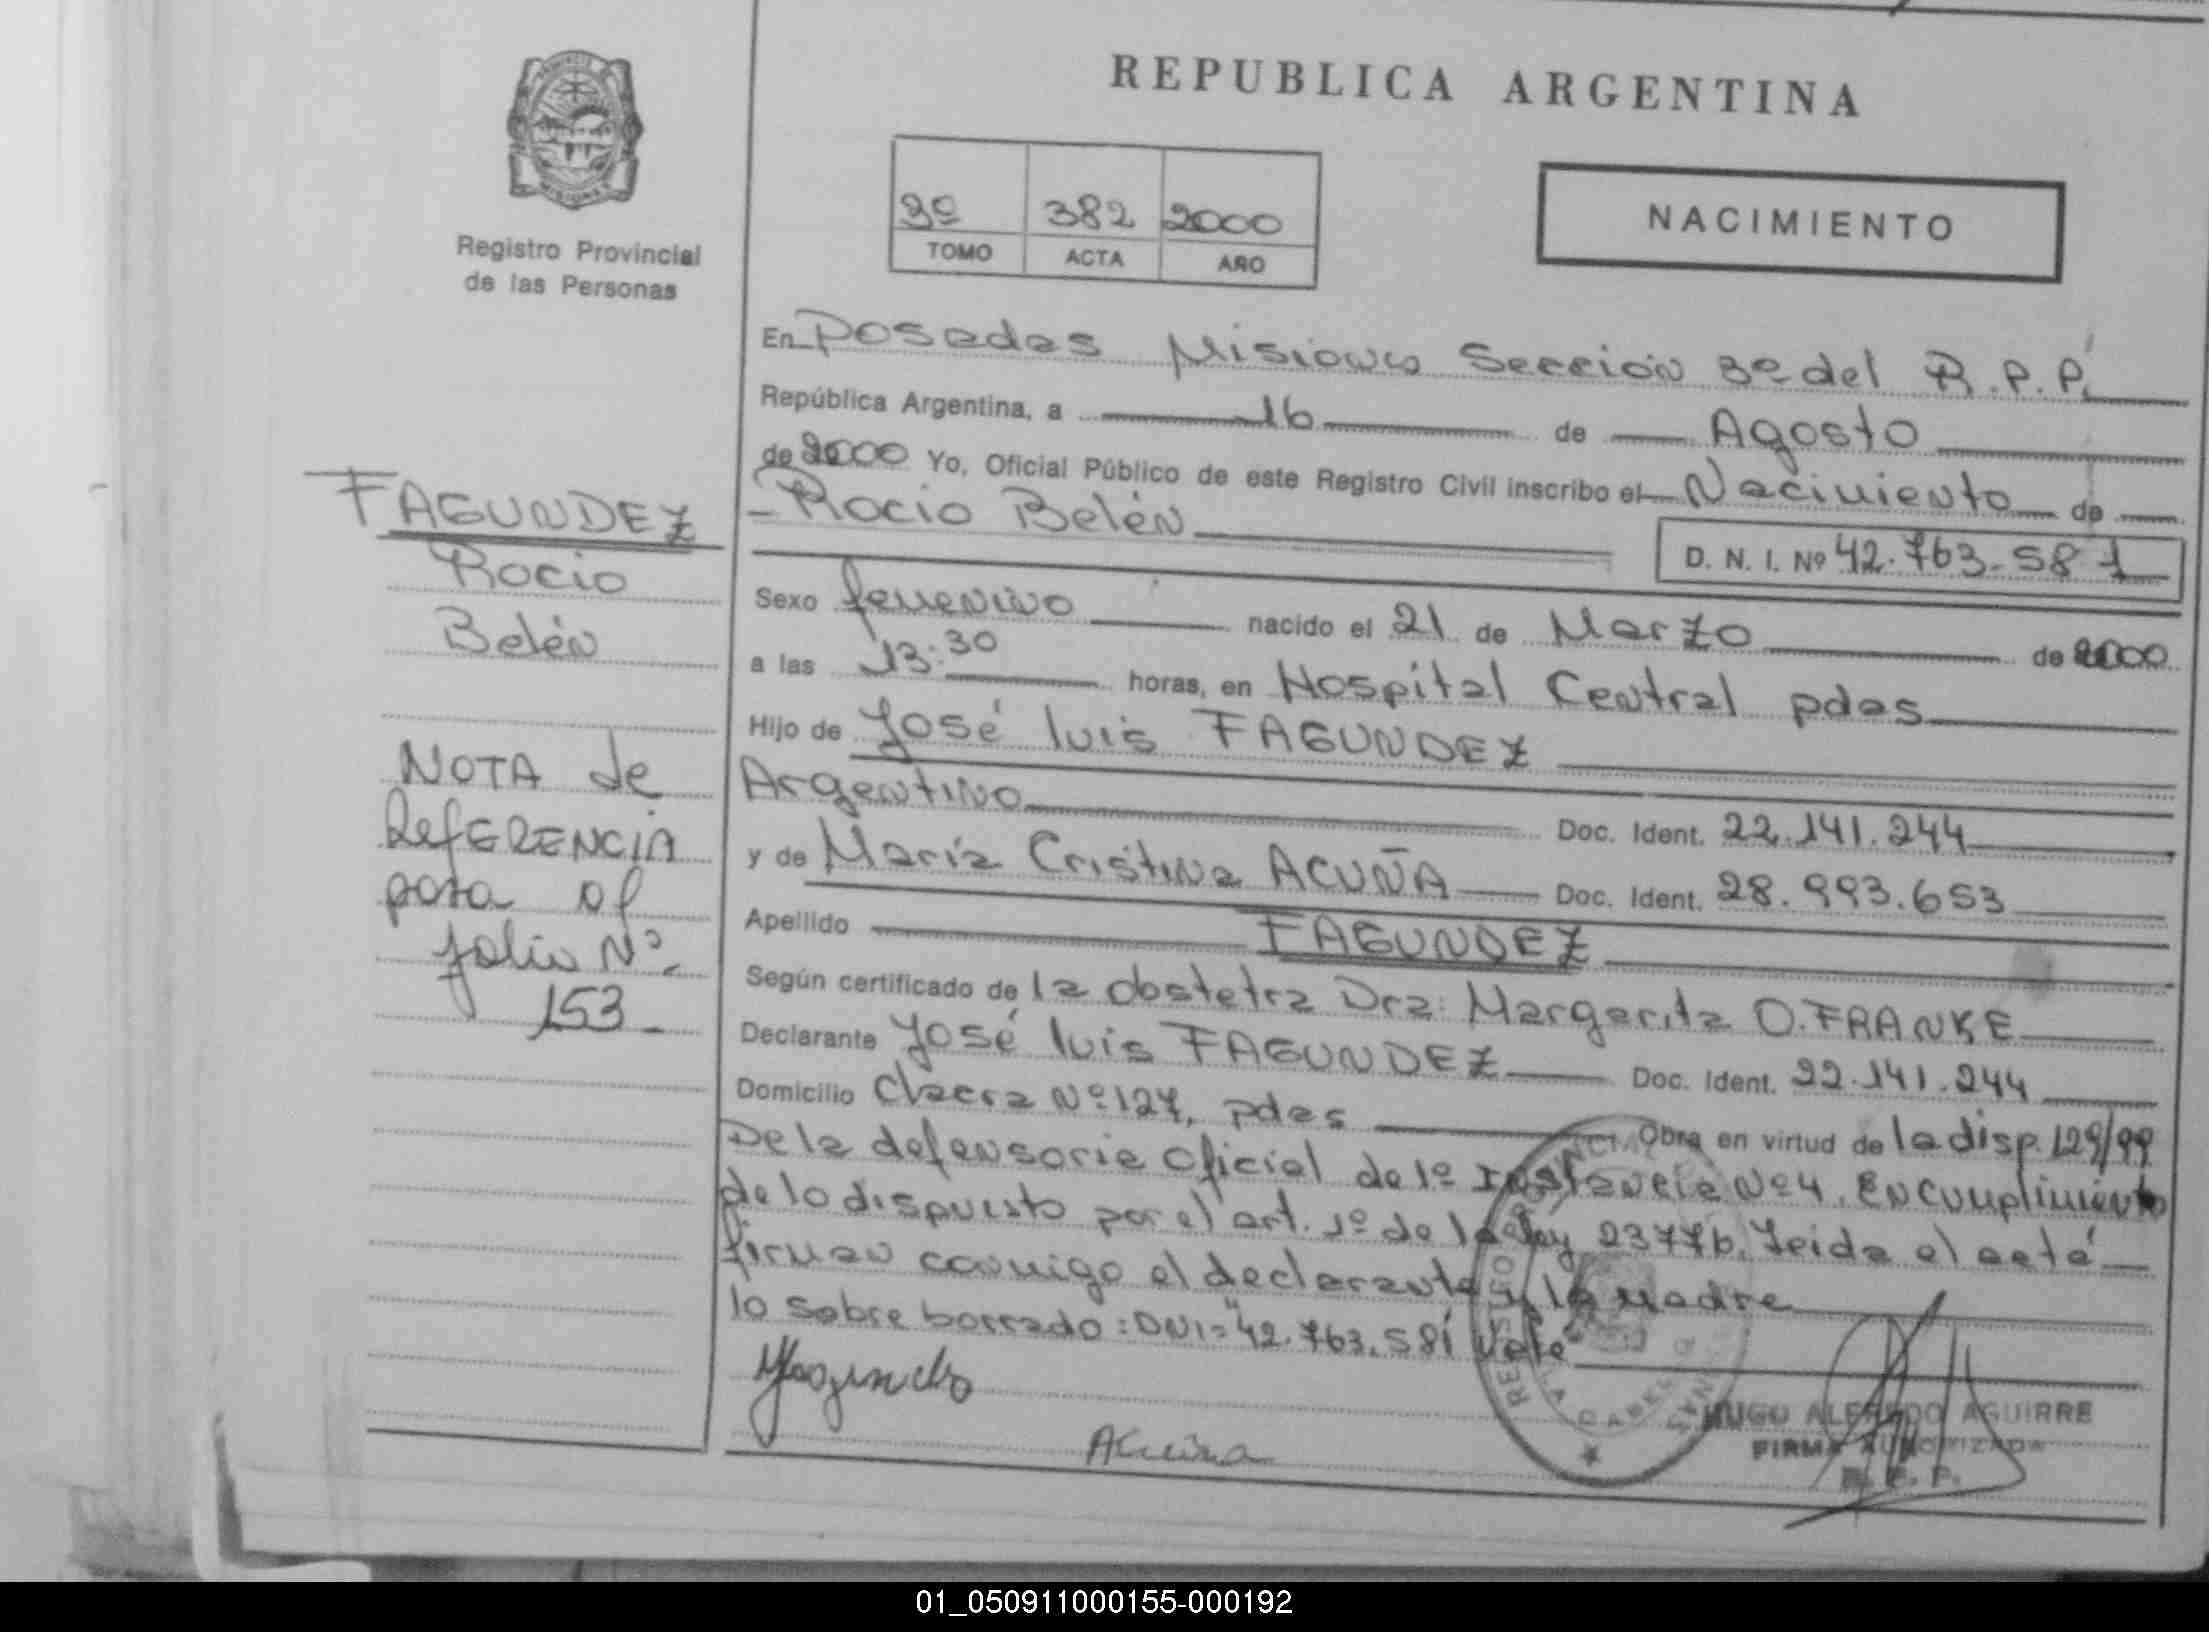 REPUBLICA ARGENTINA
Registro Provincial
de las Personas
3º 382 2000
TOMO ACTA AÑO
NACIMIENTO
En Posadas Misiones Sección 3º del R.P.P.
República Argentina, a 16 de Agosto
de 2000 Yo, Oficial Público de este Registro Civil inscribo el Nacimiento de
Rocio Belén
D. N. I. Nº 42.763.581
Sexo femenino nacido el 21 de Marzo de 2000
a las 13:30 horas, en Hospital Central pdas
Hijo de José luis FAGUNDEZ
Argentino Doc. Ident. 22.141.244
y de María Cristina ACUÑA Doc. Ident. 28.993.653
Apellido FAGUNDEZ
Según certificado de la obstetra Dra: Margarita O. FRANKE
Declarante José luis FAGUNDEZ Doc. Ident. 22.141.244
Domicilio Chacra Nº 127, pdas Obra en virtud de la disp. 129/99
De la defensoria Oficial de 1º Instancia Nº 4. En cumplimiento
de lo dispuesto por el art. 1º de la ley 23776. leida el acta
firman conmigo el declarante y la madre
lo sobre borrado: DNI="42.763.581 Vale
Acuña
HUGO ALFREDO AGUIRRE
FIRMA AUTORIZADA
R. P. P.
FAGUNDEZ
Rocio
Belén
NOTA de
REFERENCIA
para al
folio Nº
153
01_050911000155-000192